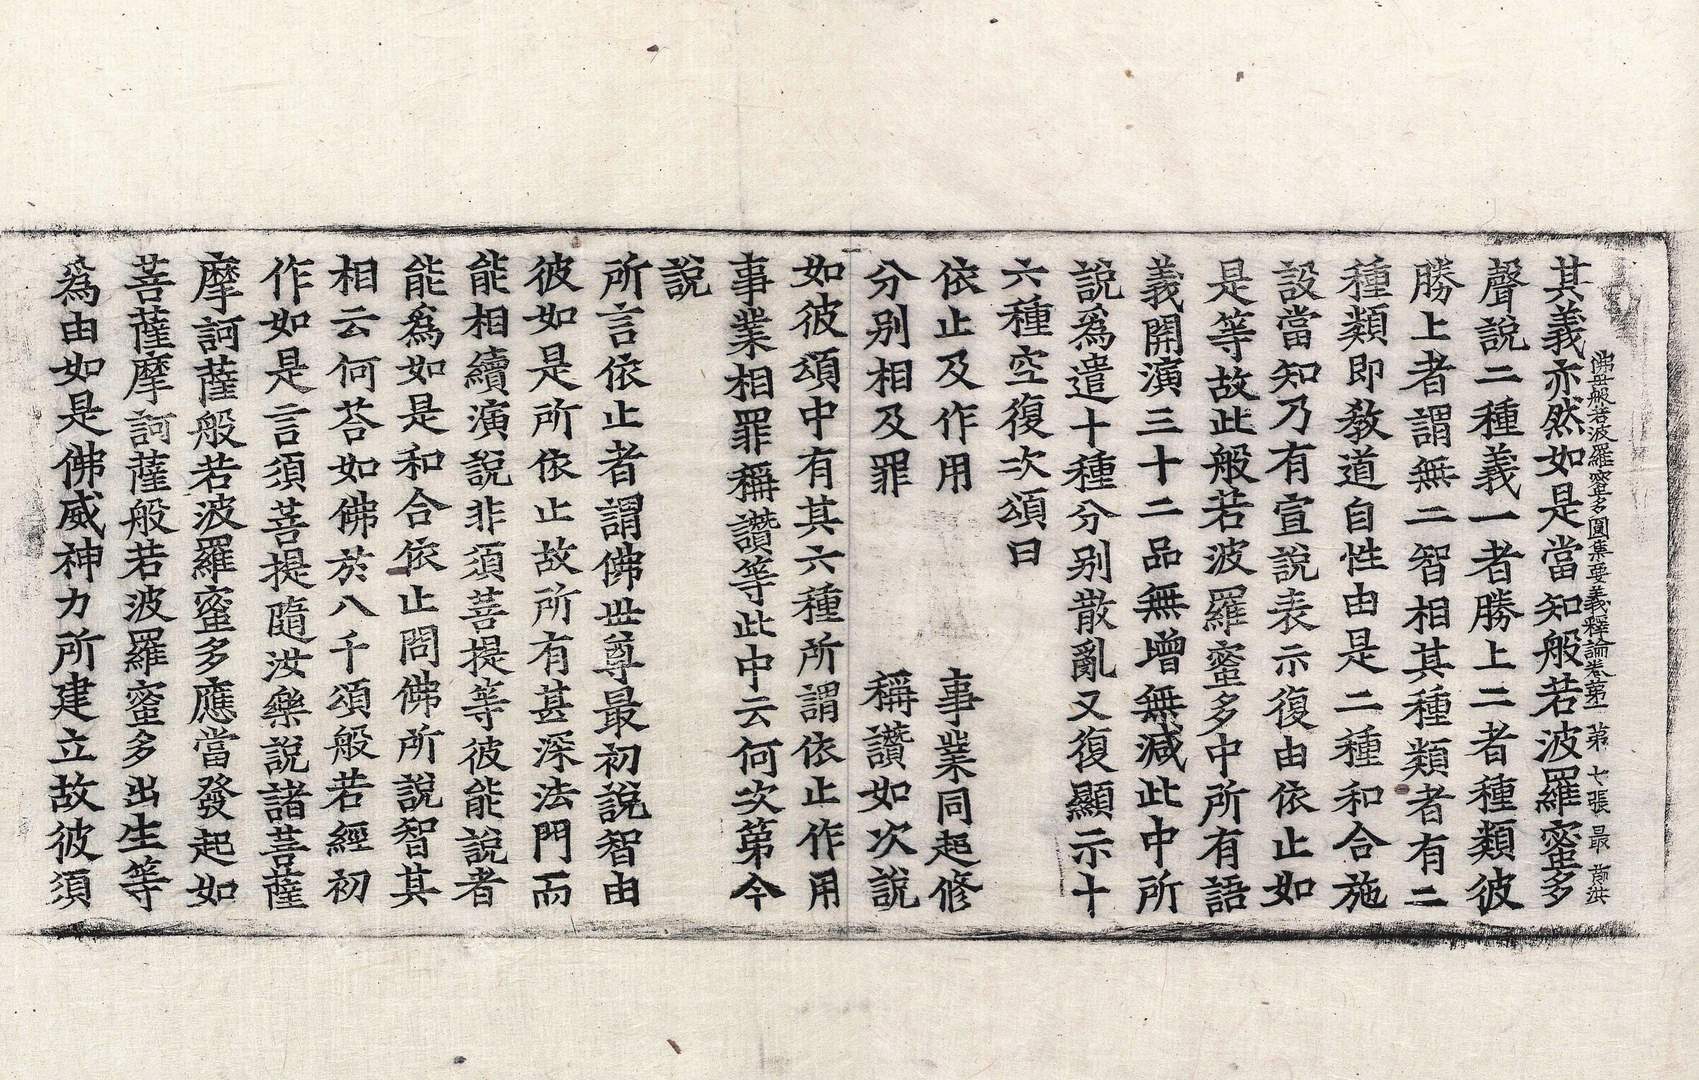 佛母般若波羅蜜多圓集要義釋論卷第一 第七張 最
其義亦然如是當知般若波羅蜜多
聲說二種義一者勝上二者種類彼
勝上者謂無二智相其種類者有二
種類即教道自性由是二種和合施
設當知乃有宣說表示復由依止如
是等故此般若波羅蜜多中所有語
義開演三十二品無增無減此中所
說為遣十種分别散亂又復顯示十
六種空復次頌曰
依止及作用 事業同起修
分别相及罪 稱讚如次說
如彼頌中有其六種所謂依止作用
事業相罪稱讚等此中云何次第今
說
所言依止者謂佛世尊最初說智由
彼如是所依止故所有甚深法門而
能相續演說非須菩提等彼能說者
能爲如是和合依止問佛所說智其
相云何荅如佛於八千頌般若經初
作如是言須菩提隨汝樂說諸菩薩
摩訶薩般若波羅蜜多應當發起如
菩薩摩訶薩般若波羅蜜多出生等
爲由如是佛威神力所建立故彼須